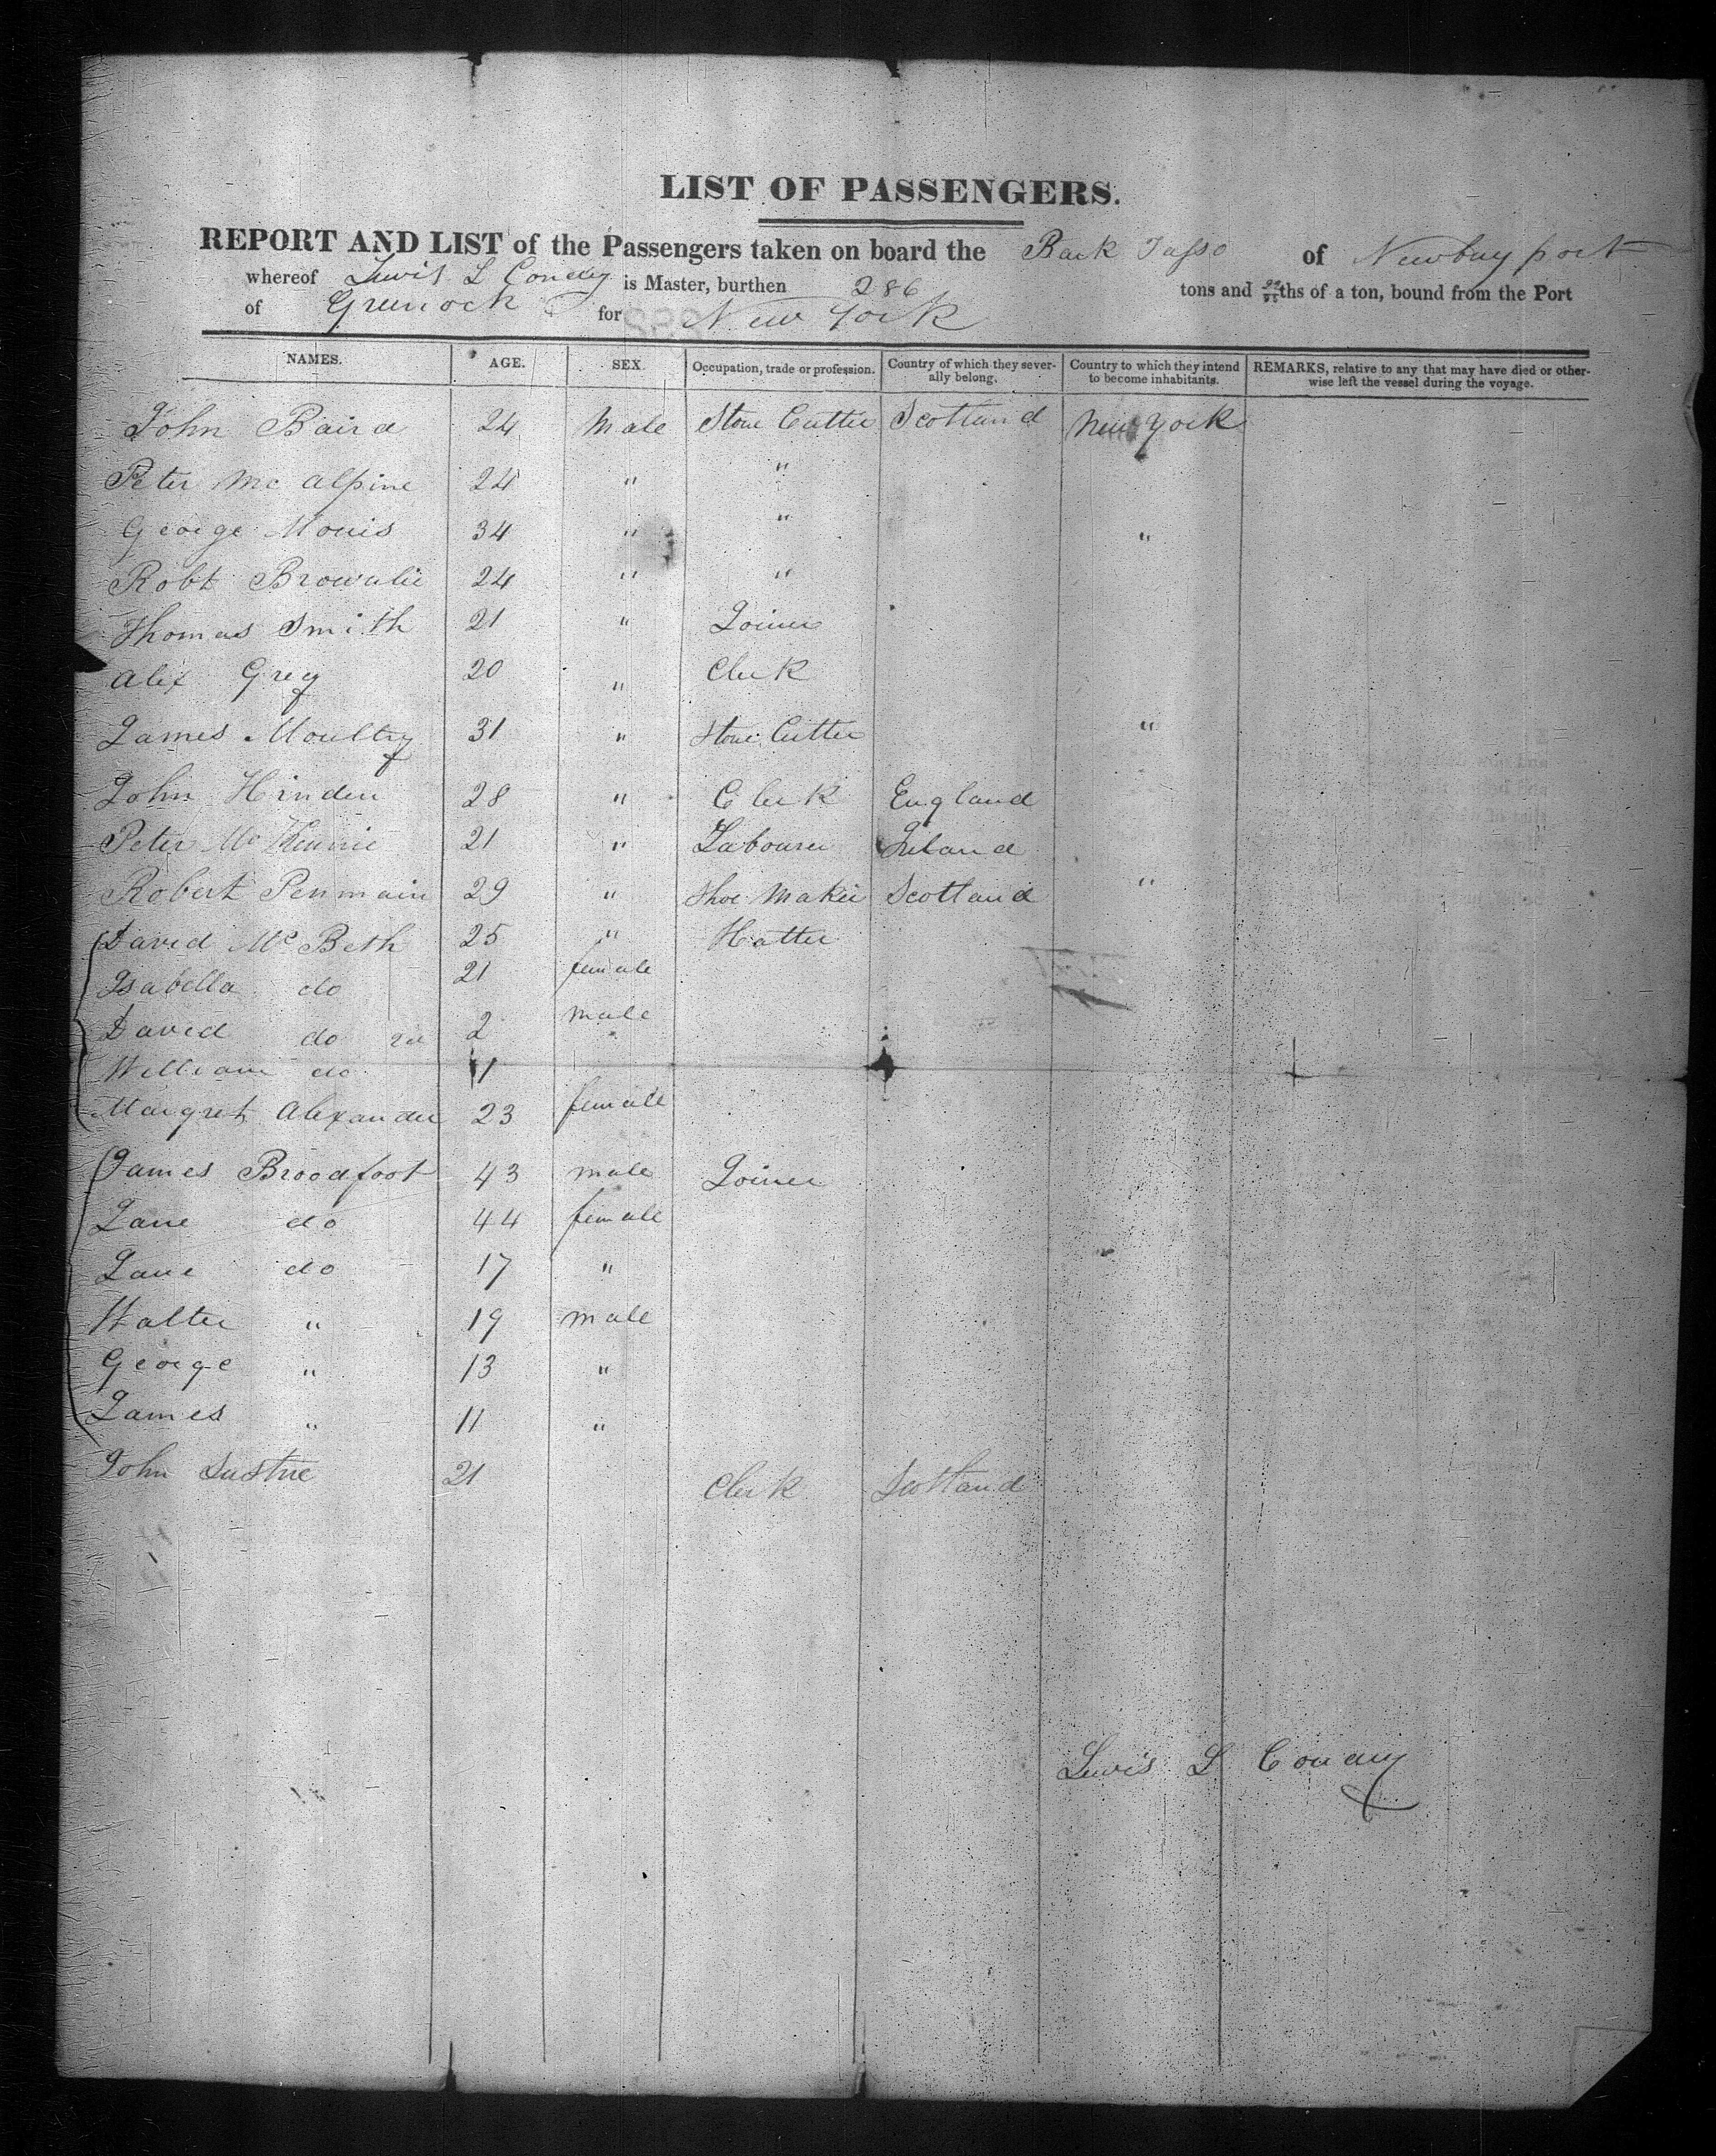 LIST OF PASSENGERS.
REPORT AND LIST of the Passengers taken on board the Bark Tasso of Newburyport
whereof Lewis L Conday is Master, burthen 286 tons and ths of a ton, bound from the Port
of Greenock for New York
NAMES. AGE. SEX. Occupation, trade or profession. Country of which they severally belong. Country to which they intend to become inhabitants. REMARKS, relative to any that may have died or otherwise left the vessel during the voyage.
John Baird 24 Male Stone Cutter Scotland New York
Peter Mc Alpine 24 " "
George Morris 34 " " "
Robt Brownlie 24 " "
Thomas Smith 21 " Joiner
Alex Grey 20 " Clerk
James Moultry 31 " Stone Cutter "
John Hinden 28 " Clerk England
Peter Mc 21 " Labourer Ireland
Robert Penmain 29 " Shoe Maker Scotland "
David Mc Beth 25 " Hatter
Isabella do 21 female
David do 2d 2 male
William do 1 "
Margret Alexander 23 female
James Broadfoot 43 male Joiner
Jane do 44 female
Jane do 17 "
Walter " 19 male
George " 13 "
James " 11 "
John 21 Clerk Scotland
Lewis L Conday